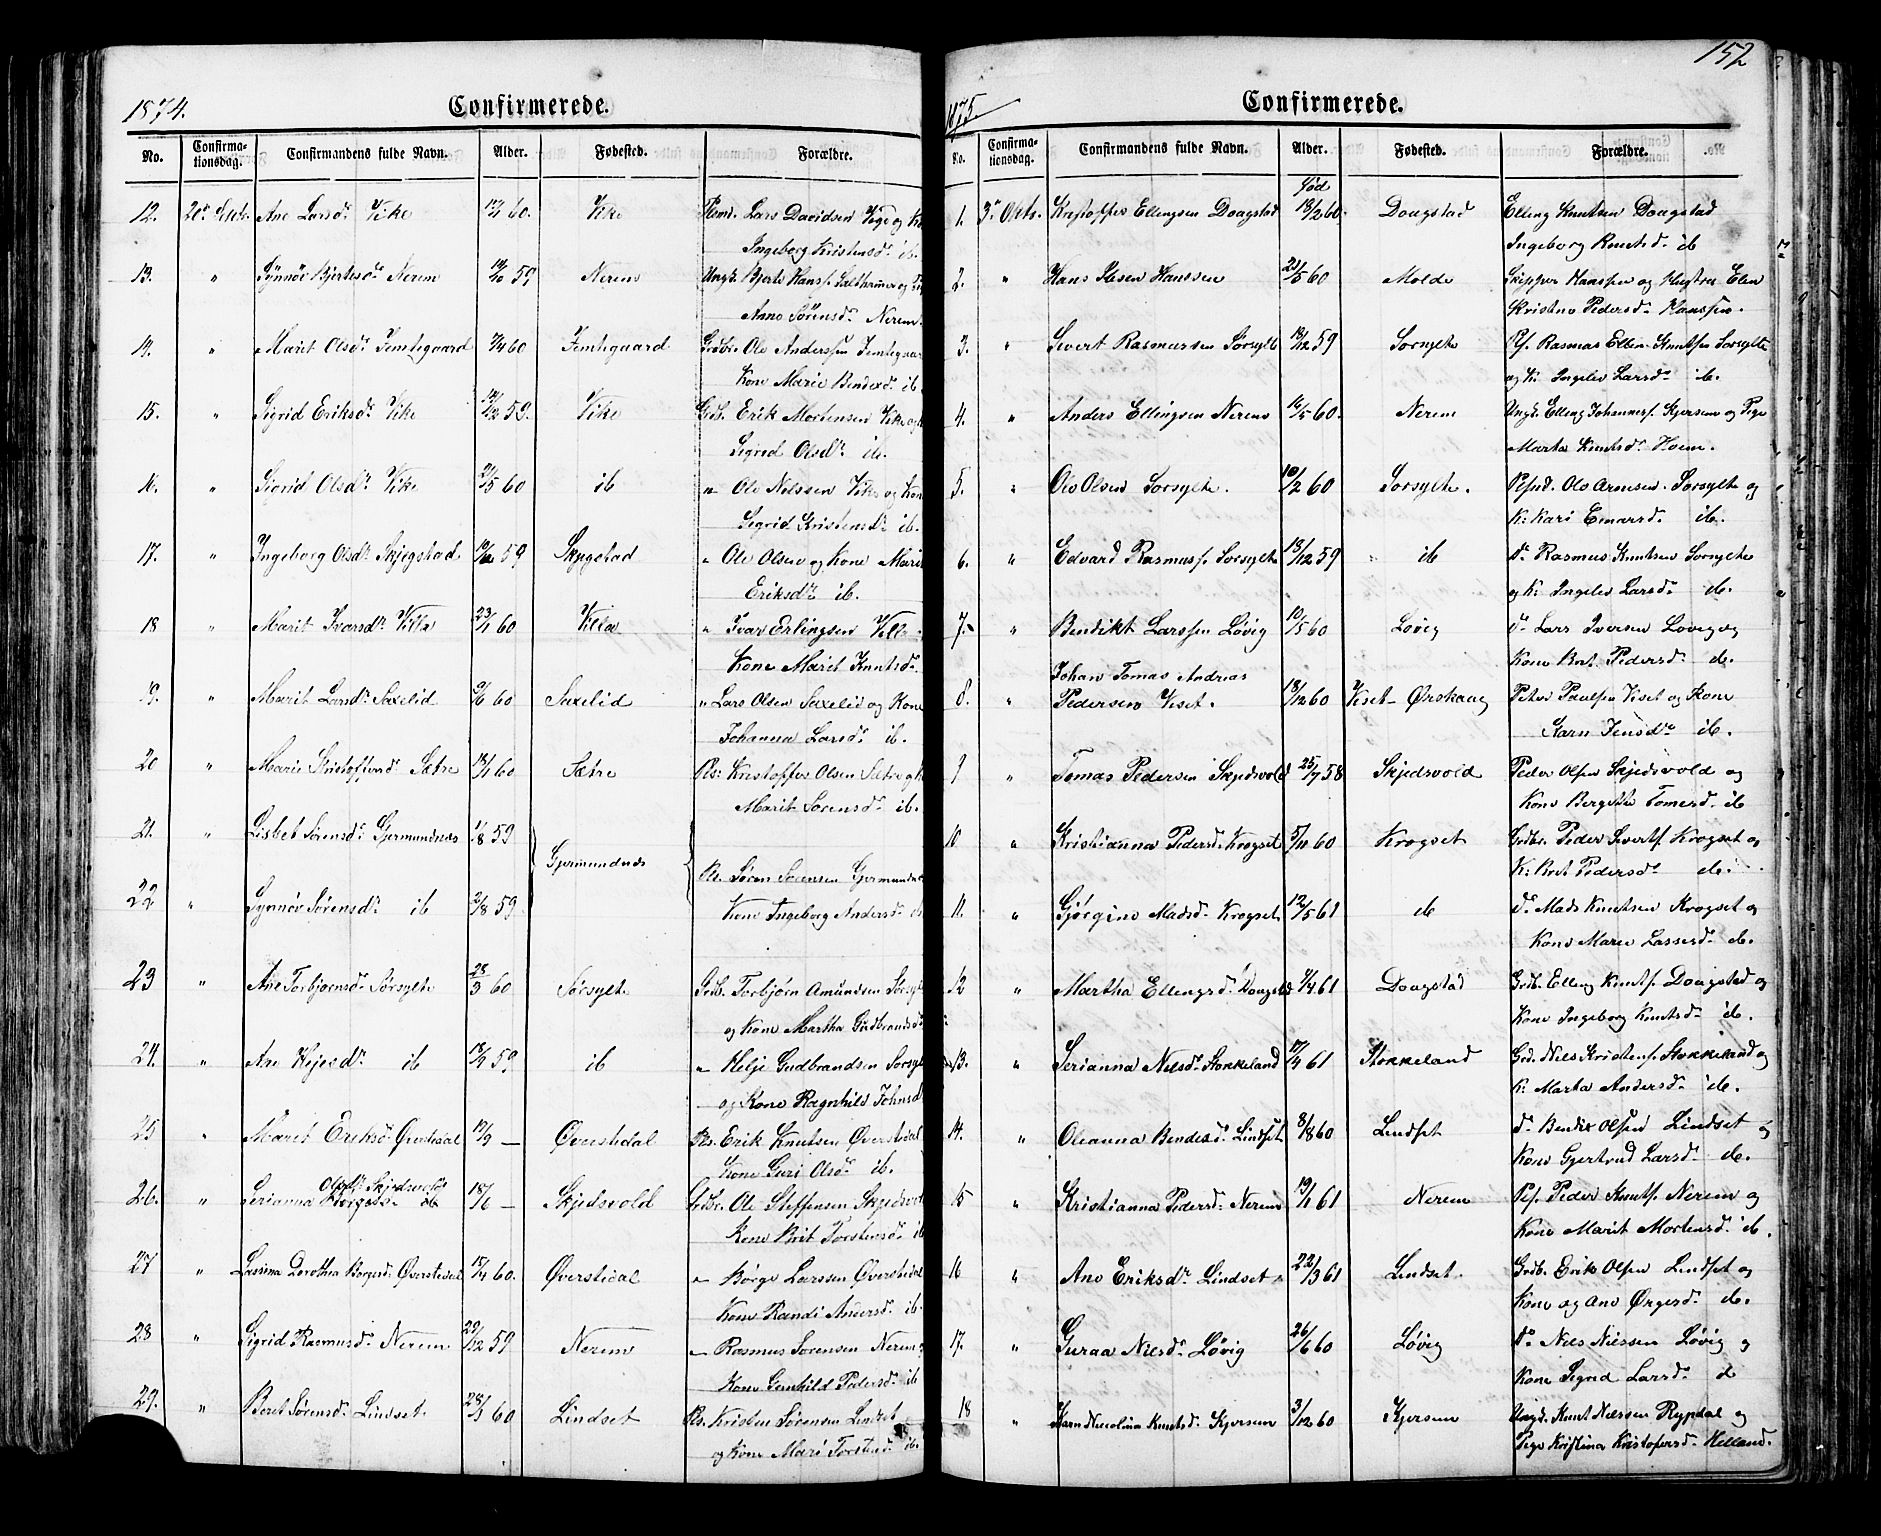 1874.
Confirmerede.
No. Confirma-tionsdag. Confirmandens fulde Navn. Alder. Fødested. Forældre.
12. 20de Septr. Ane Larsdr Vike 60. Vike Lars Davidsen Vige og
Ingeborg Kristensdr ib.
13. " Synnøv Bjertesdr Nerem 59 Nerem Ungk. Bjerte Hansf. Salthammer og
Anne Sørensdr Nerem
14. " Marit Olsdr Jemtegaard 60 Jemtegaard Grdbr. Ole Anderssen Jemtegaar
Kone Marie Bendixdr ib.
15. " Sigrid Eriksdr Vike 59. Vike Grdb. Erik Mortensen Vike og
Sigrid Olsdr ib.
16. " Sigrid Olsdr Vike 21/5 60 ib " Ole Nilssen Vike og Kon
Sigrid Kristensdr ib.
17. " Ingeborg Olsdr Skjegstad 59 Skjegstad " Ole Olsen og Kone Mari
Eriksdr ib.
18 " Marit Ivarsdr Villa 23/1 60 Villa " Ivar Erlingsen Villa
Kone Marit Knutsdr
19. " Marit Larsdr Saxelid 60 Saxelid " Lars Olsen Saxelid og Kone
Johanna Larsdr ib.
20 " Marie Kristoffersdr Sætre 18/1 60 Sætre Pls: Kristoffer Olsen Sætre og K
Marit Sørensdr ib.
21. " Lisbet Sørensdr Gjermundnæs 59 Gjermundnæs
Søren Sørensen Gjermundnæ
22 " Synnøv Sørensdr ib 2/8 59 Kone Ingeborg Andersdr ib
23 " Ane Torbjørnsdr Sørsylte 28/3 60 Sørsylte Grdb. Torbjørn Amundsen Sørsyl
og Kone Martha Gudbrandsdr
24. " Ane Heljesdr ib 59 ib " Helje Gudbrandsen Sørsyl
og Kone Ragnhild Johnsd
25 " Marit Eriksd Øverstedal — Øverstedal Ps. Erik Knutsen Øverstedal
Kone Guri Olsdr ib.
26. " Serianna Olsdr Skjedsvold 18/6 — Skjedsvold Grdbr. Ole Steffensen Skjedsvol
Kone Brit Torstensdr ib
27 " Lassina Dorothea Børgesdr Øverstedal 15/4 60. Øverstedal " Børge Larssen Øverstedal
Kone Randi Andersdr ib.
28 " Sigrid Rasmusdr Nerem 59 Nerem " Rasmus Sørensen Nerem
Kone Gunhild Pedersdr ib
29. " Beret Sørensdr Lindset. 60 Lindset Ps. Kristen Sørensen Lindset
og Kone Mari Torstensdr ib.
152
1875.
Confirmerede.
No. Confirma-tionsdag. Confirmandens fulde Navn. Alder. Fødested. Forældre.
fød
1. 3die Okt. Kristoffer Ellingsen Daagstad 18/2 60. Daagstad Elling Knutsen Daagstad
Ingeborg Knutsdr ib
2. " Hans Ibsen Hanssen 21/5 60 Molde Skipper Hanssen og Hustru Elen
Kristine Pedersdr Hanssen.
3. " Sivert Rasmussen Sørsylte 18/12 59 Sørsylte Pf. Rasmus Ellin Knutsen Sørsylte
og K. Ingelev Larsdr ib.
4. " Anders Ellingsen Nerem 16/5 60. Nerem Ungk. Elling Johannesf. Kjersem og Pige
Marta Knutsdr Hoem.
5. " Ole Olsen Sørsylte. 10/2 60 Sørsylte. Ole Arnesen Sørsylte og
K. Kari Einarsd. ib.
6. " Edvard Rasmusf. Sørsylte 13/12 59 ib Do Rasmus Knutsen Sørsylte
og K. Ingelev Larsdr do.
7. " Bendikt Larssen Løvig 10/5 60 Løvig Do Lars Iversen Løvig og
Kone Brit Pedersdr do.
Johan Tomas Andreas
8. " Pedersen Viset. 18/12 60 Viset Ørskaug Peter Paulsen Viset og Kone
Karn Jensdr ib.
9 " Tomas Pedersen Skjedsvold 25/7 58 Skjedsvold Peder Olsen Skjedsvold og
Kone Bergitte Tomesd. ib
10 " Kristianna Pedersdr Krogset 5/11 60 Krogset Grdbr. Peder Sivertf. Krogset og
K: Brit Pedersdr do.
11. " Gjørgine Madsdr Krogset 12/5 61 do Do Mads Knutsen Krogset og
Kone Marie Lassesdr do.
12 " Martha Ellingsdr Daagstad 61 Daagstad Grdb. Elling Knutf. Daagstad og
Kone Ingeborg Knutsdr ib.
13. " Serianna Nilsdr Stokkeland 61 Stokkeland Grd. Nils Kristenf. Stokkeland og
K: Marta Andersdr ib.
14. " Oleanna Bendixdr Lindset 8/8 60 Lindset Do Bendix Olsen Lindset og
Kone Gjertrud Larsdr do.
15 " Kristianna Pedersdr Nerem 19/1 61 Nerem Pf. Peder Knutf. Nerem og
Kone Marit Mortensdr do.
16 " Ane Eriksdr Lindset. 22/3 61 Lindset. Grdb. Erik Olsen Lindset og
Kone og Ane Ørgersd. do.
17. " Guraa Nilsdr Løvig 26/6 60 Løvig Do Nils Nilssen Løvig og
Kone Sigrid Larsdr do
18 " Karn Nicolina Knutsdr Kjersem 3/12 60 Kjersem Ungk. Knut Nilssen Rypdal og
Pige Kristina Kristofersdr Helland.